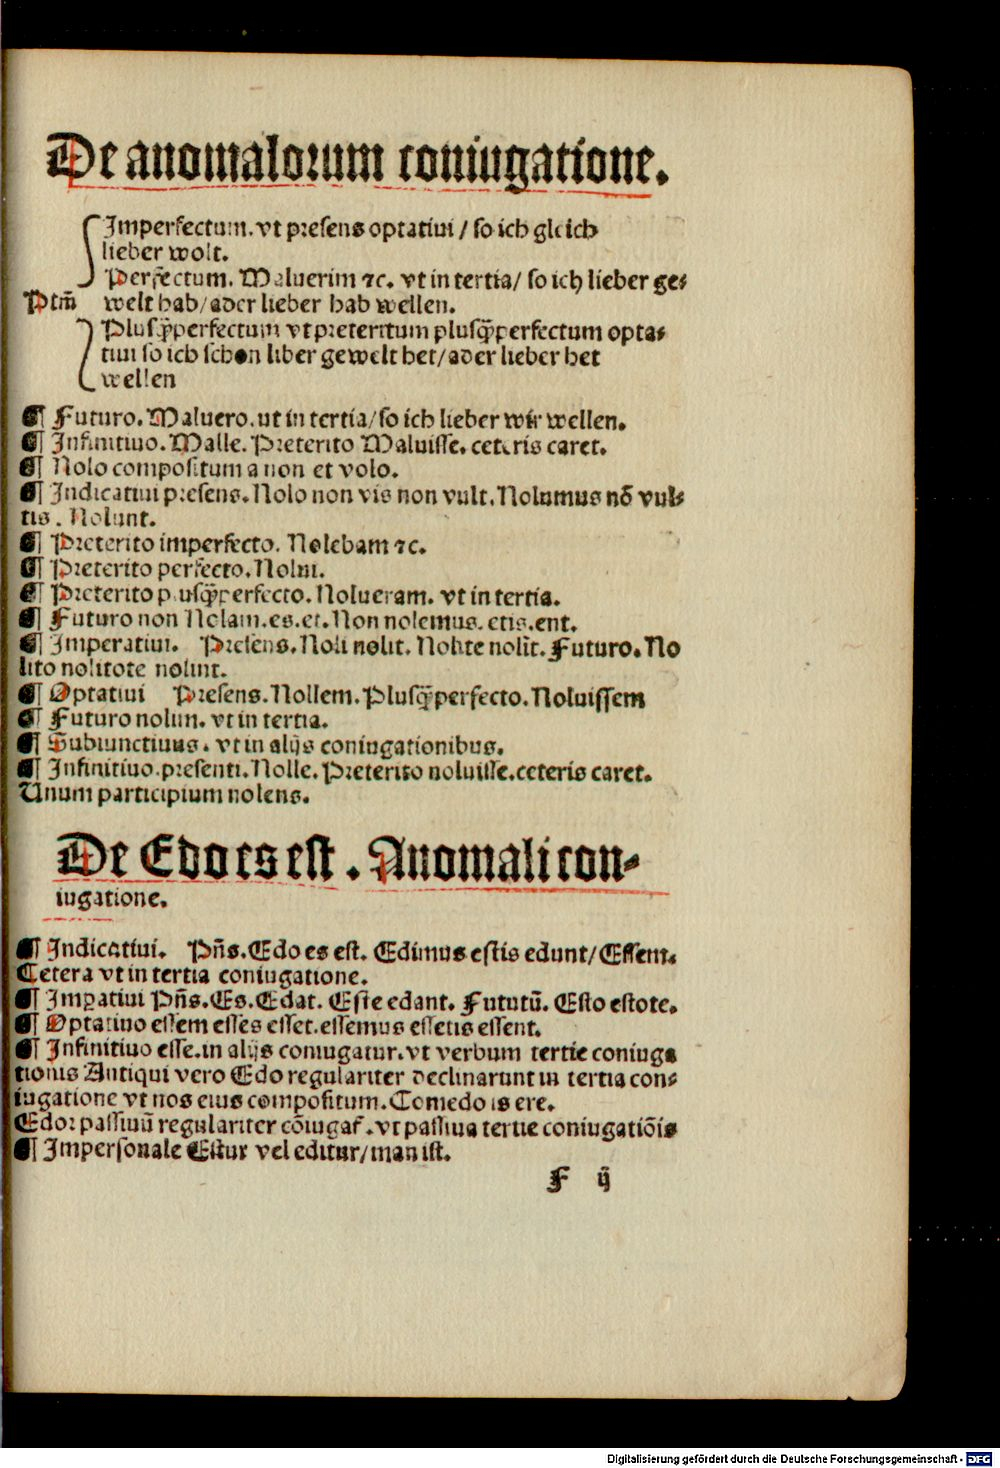 De anomalorum coniugatione.
Imperfectum. vt presens optatiui / so ich gleich
lieber wolt.
Perfectum. Maluerim ⁊c. vt in tertia/ so ich lieber ge⸗
Ptm̄ welt hab/ader lieber hab wellen.
Plusq̄perfectum vt preteritum plusq̄perfectum opta⸗
tiui so ich schon liber gewelt het/ader lieber het
wellen
¶ Futuro. Maluero. ut in tertia/so ich lieber wir wellen.
¶ Infinitiuo. Malle. Preterito Maluisse. ceteris caret.
¶ Nolo compositum a non et volo.
¶ Indicatiui presens. Nolo non vis non vult. Nolumus nō vul⸗
tis. Nolunt.
¶ Preterito imperfecto. Nolebam ⁊c.
¶ Preterito perfecto. Nolui.
¶ Preterito plusq̄perfecto. Nolueram. vt in tertia.
¶ Futuro non Nolam. es. et. Non nolemus. etis. ent.
¶ Imperatiui. Presens. Noli nolit. Nolite nolīt. Futuro. No
lito nolitote nolint.
¶ Optatiui Presens. Nollem. Plusq̄perfecto. Noluissem
¶ Futuro nolim. vt in tertia.
¶ Subiunctiuus. vt in alijs coniugationibus.
¶ Infinitiuo. presenti. Nolle. Preterito noluisse. ceteris caret.
Unum participium nolens.
De Edo es est. Anomali con⸗
iugatione.
¶ Indicatiui. Pn̄s. Edo es est. Edimus estis edunt/Essent.
Cetera vt in tertia coniugatione.
¶ Imꝑatiui Pn̄s. Es. Edat. Este edant. Fututū. Esto estote.
¶ Optatiuo essem esses esset. essemus essetis essent.
¶ Infinitiuo esse. in alijs coniugatur. vt verbum tertie coniuga
tionis Antiqui vero Edo regulariter declinarunt in tertia con⸗
iugatione vt nos eius compositum. Comedo is ere.
Edor passiuū regulariter cōiugat᷑. vt passiua tertie coniugatiōis
¶ Impersonale Estur vel editur/man ist.
F ij
Digitalisierung gefördert durch die Deutsche Forschungsgemeinschaft - DFG